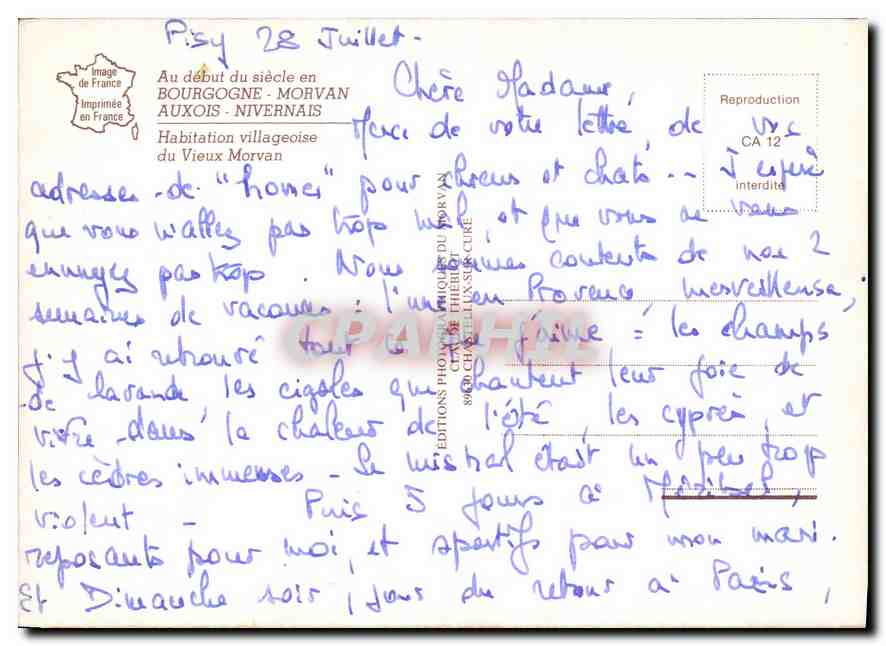 Pisy 28 Juillet -
Image
de France
Imprimée
en France
Au début du siècle en
BOURGOGNE - MORVAN
AUXOIS - NIVERNAIS
Habitation villageoise
du Vieux Morvan
Reproduction
CA 12
interdite
EDITIONS PHOTOGRAPHIQUES DU MORVAN
CLAUDE THIEBLOT
89630 CHASTELLUX-SUR-CURE
Chère Madame,
Merci de votre lettre, de vos
adresses de "homes" pour chiens et chats -- J'espère
que vous n'allez pas trop mal, et que vous ne vous
ennuyez pas trop. Nous sommes contents de nos 2
semaines de vacances : l'une en Provence merveilleuse,
j'y ai retrouvé tout ce que j'aime = les champs
de lavande, les cigales qui chantent leur joie de
vivre dans la chaleur de l'été, les cyprès, et
les cèdres immenses - Le mistral était un peu trop
violent - Puis 5 jours à Méribel,
reposants pour moi, et sportifs pour mon mari.
Et Dimanche soir, jour du retour à Paris,
CPARHIL